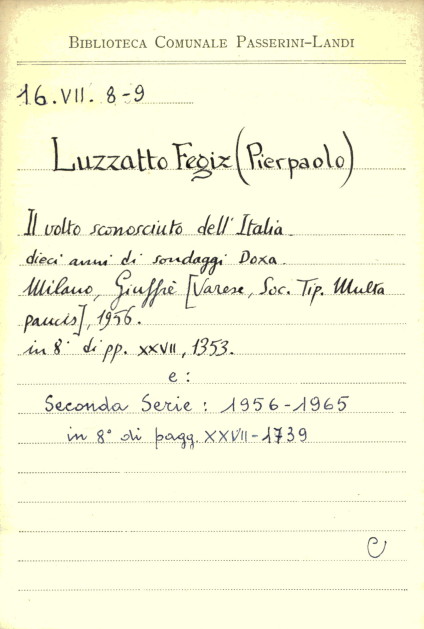 BIBLIOTECA COMUNALE PASSERINI-LANDI
16.VII. 8-9
Luzzatto Fegiz (Pierpaolo)
Il volto sconosciuto dell'Italia.
dieci anni di sondaggi Doxa.
Milano, Giuffrè [Varese, Soc. Tip. Multa
paucis], 1956.
in 8° di pp. XXVII, 1353.
e:
Seconda Serie: 1956-1965
in 8° di pagg. XXVII-1739
C